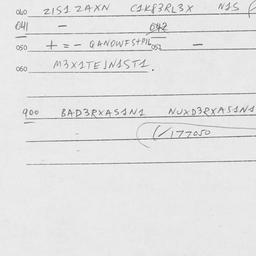 040 ZIS1 ZAXN C1K83RL3X N1S
041 - 042
050 + = - QANOWFS+PIL 052 -
060 M3X1TEJN1ST1.
900 BAD3RXAS1N1 NUXD3RXAS1N1
177050